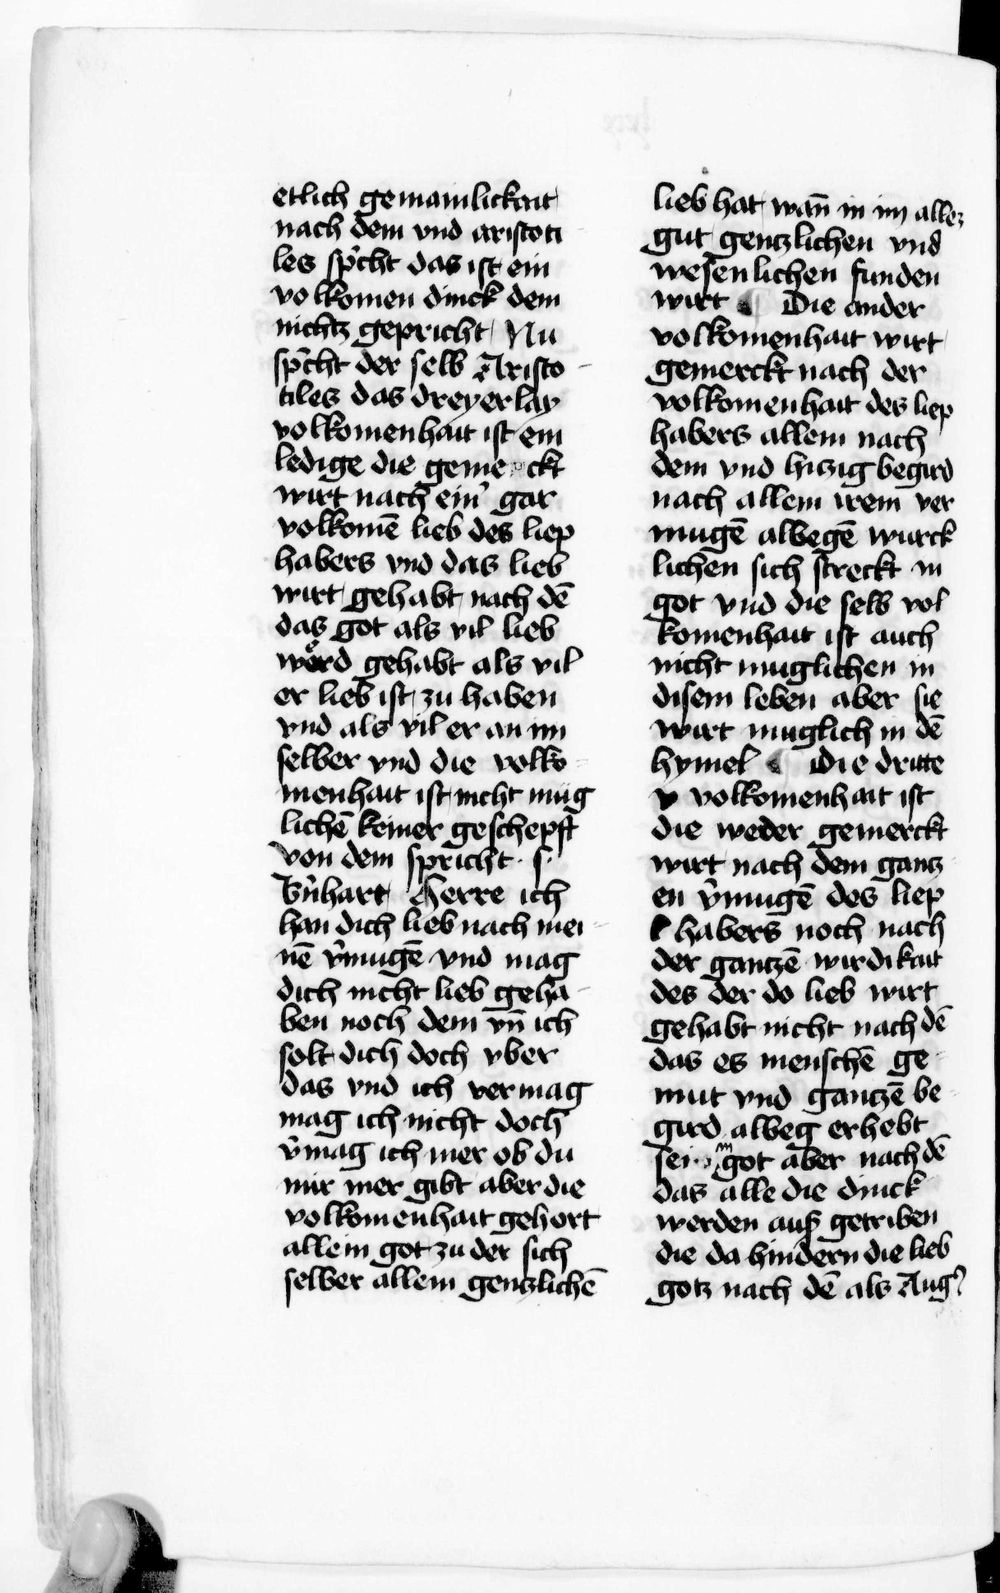 etlich gemainlickait
nach dem vnd aristoti
les spͥcht das ist ein
volkomen dinck dem
nichtz gepricht Nu
spͥcht der selb Aristo
tiles das dreyerlay
volkomenhait ist ein
ledige die geme ckt
wirt nach einˀ gar
volkomē lieb des liep
habers vnd das lieb
wirt gehabt nach dē
das got als vil lieb
woͤrd gehabt als vil
er lieb ist zu haben
vnd als vil er an im
selber vnd die volko
menhait ist nicht müg
lichē keiner geschepft
von dem spricht · s ·
Bˀnhart Herre ich
han dich lieb nach mei
nē vˀmugē vnd mag
dich nicht lieb geha
ben noch dem vn̄ ich
solt dich doch vber
das vnd ich vermag
mag ich nicht doch
vˀmag ich mer ob du
mir mer gibt aber die
volkomenhait gehort
allein got zu der sich
selber allein gentzlichē
lieb hat wan̄ in im allez
gut gentzlichen vnd
wesenlichen funden
wirt ¶ Die ander
volkomenhait wirt
gemerckt nach der
volkomenhait des liep
habers allein nach
dem vnd hitzig begird
nach allem irem ver
mugē albegē wurck
lichen sich streckt in
got vnd die selb vol
komenhait ist auch
nicht muglichen in
disem leben aber sie
wirt muglich in dē
hymel ¶ Die dritte
v volkomenhait ist
die weder gemerckt
wirt nach dem gantz
en vˀmugē des liep
habers noch nach
der gantzē wirdikait
des der do lieb wirt
gehabt nicht nach dē
das es menschē ge
mut vnd gantzē be
gird albeg erhebt
sei in got aber nach dē
das alle die dinck
werden auß getriben
die da hindern die lieb
gotz nach dē als Augˀ